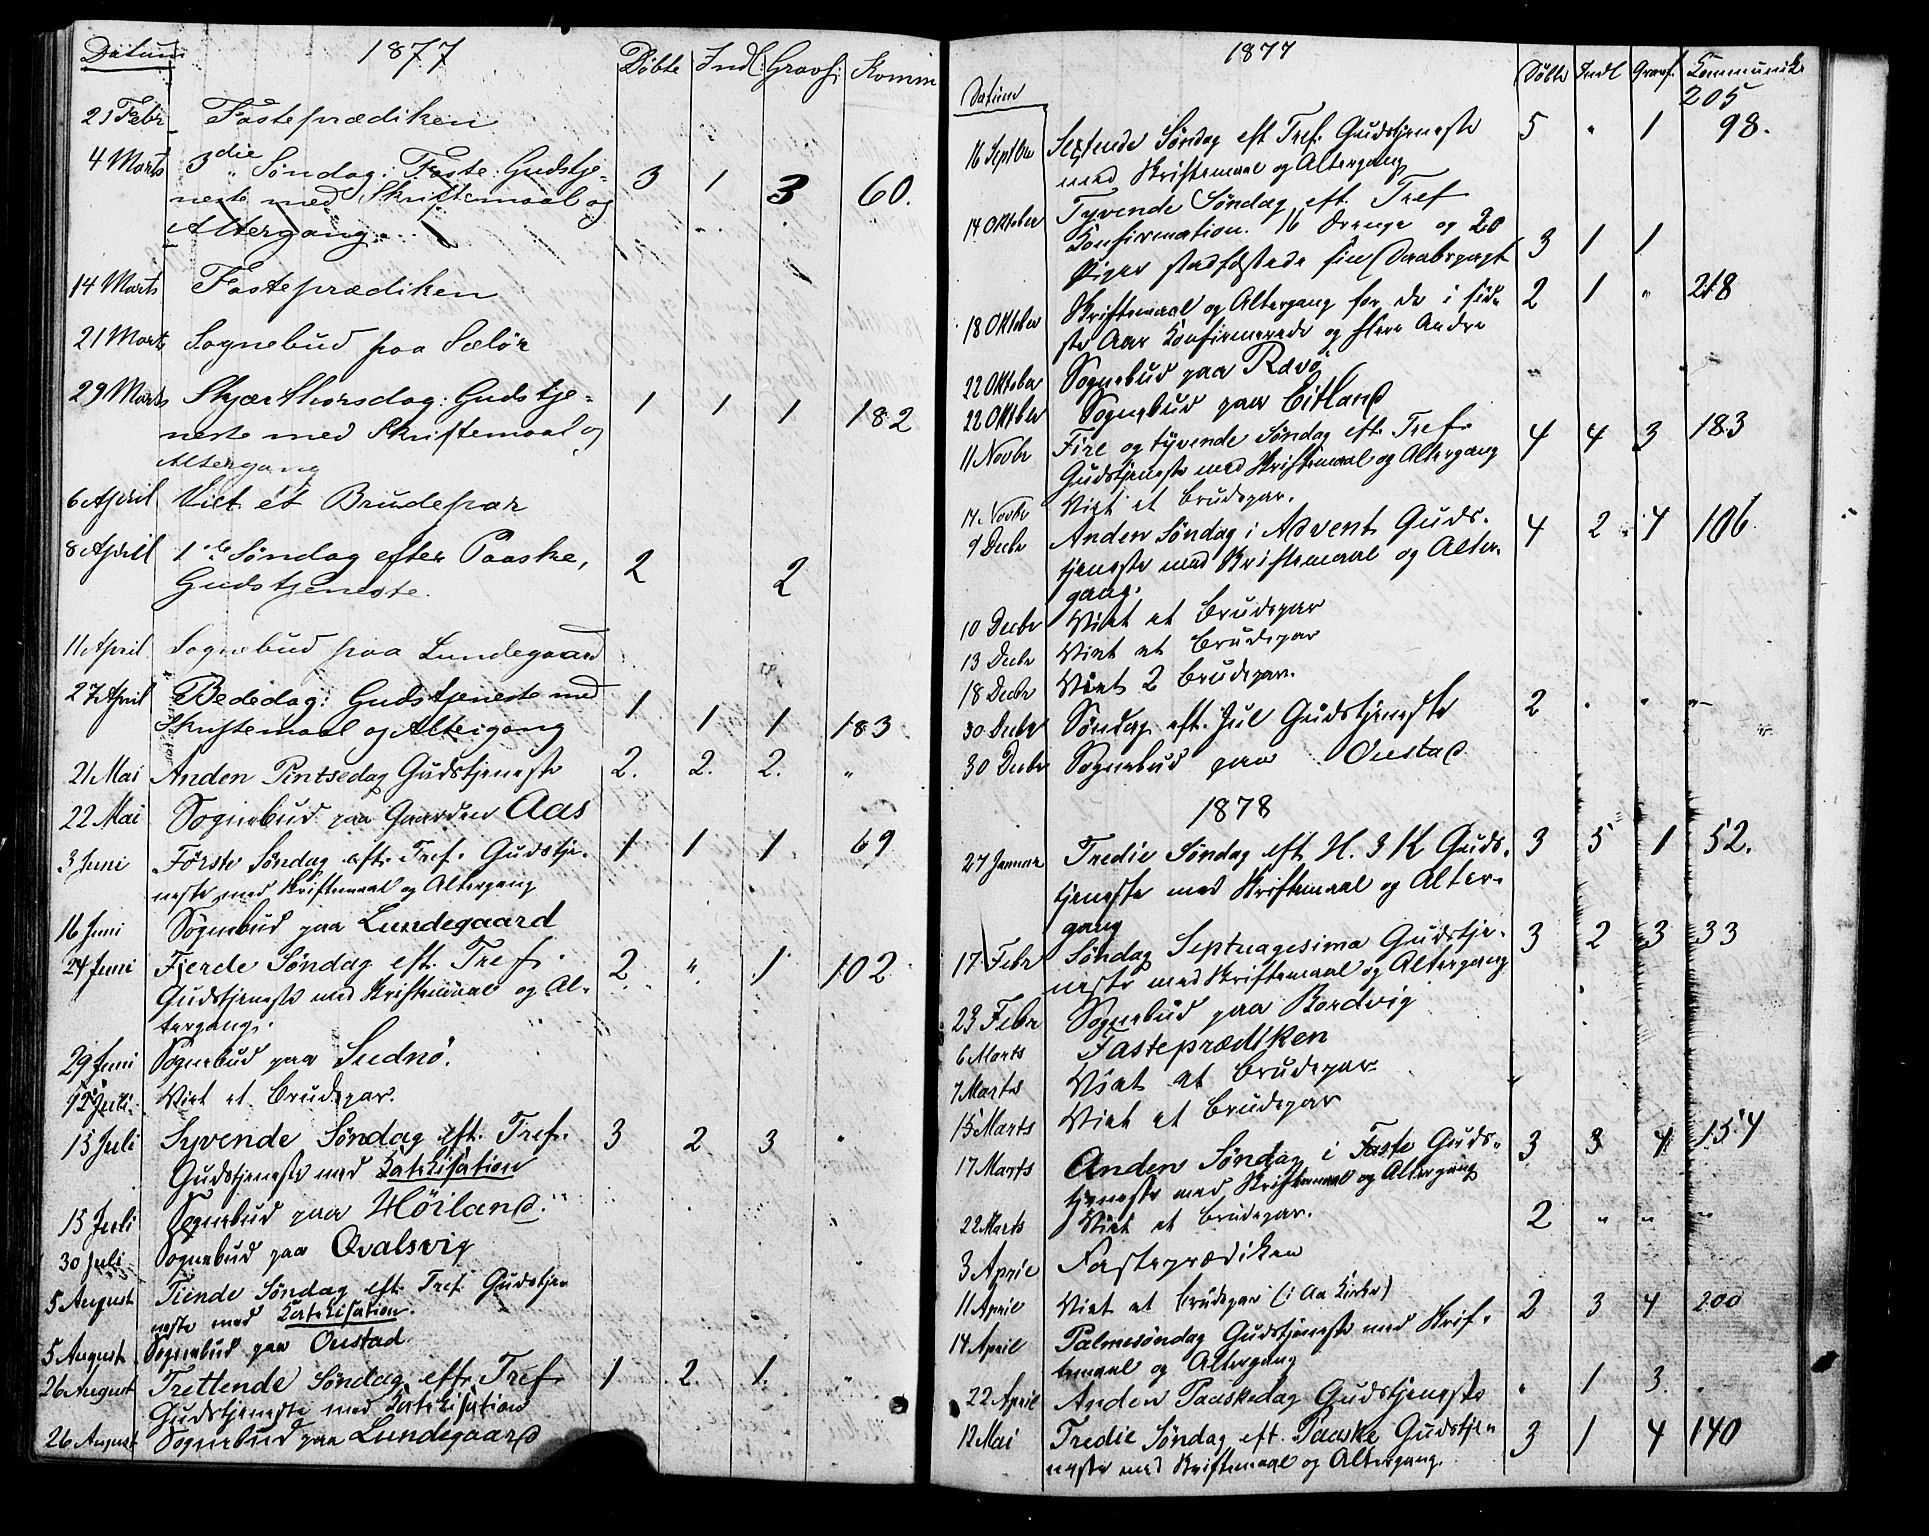 Datum 1877 Döbte Indl: Gravf: Komm
21 Febr Fasteprædiken
4 Marts 3die Søndag i Faste: Gudstje= 3 1 3 60.
neste med Skriftemaal og
Altergang.
14 Marts Fasteprædiken
21 Marts Sognebud paa Selör
29 Marts Skjærthorsdag: Gudstje= 1 1 1 182
neste med Skriftemaal og
Altergang
6 April Viet et Brudepar
8 April 1ste Søndag efter Paaske, 2 2
Gudstjeneste.
11 April Sognebud paa Lundegaard
27 April Bededag: Gudstjeneste med 1 1 1 183
Skriftemaal og Altergang
21 Mai Anden Pintsedag Gudstjeneste 2. 2. 2. "
22 Mai Sognebud paa Gaarden Aas
3 Juni Første Søndag eft. Tref. Gudstje- 1 1 1 69
neste med Skriftemaal og Altergang
16 Juni Sognebud paa Lundegaard
24 Juni Fjerde Søndag eft. Tref. 2. " 1 102
Gudstjeneste med Skriftemaal og Al-
tergang.
29 Juni Sognebud paa Sudnö.
12 Juli Viet et Brudepar.
15 Juli Syvende Søndag eft. Tref. 3 2 3 "
Gudstjeneste med Katekisation
15 Juli Sognebud paa Höiland.
30 Juli Sognebud paa Qvalsvig
5 August Tiende Søndag eft. Tref. Gudstje-
neste med Katekisation.
5 August Sognebud paa Onstad
26 August Trettende Søndag eft. Tref 1 2. 1. "
Gudstjeneste med Katekisation
26 August Sognebud paa Lundegaard
1877
Datum Døbte Indl Gravf. Kommunik.
205
16 Septbr Sextende Søndag eft Tref. Gudstjeneste 5 " 1 98.
med Skriftemaal og Altergang
14 Oktober Tyvende Søndag eft. Tref
Konfirmation. 16 Drenge og 20
Piger stadfæstede sin Daabspagt 3 1 1
18 Oktober Skriftemaal og Altergang for de i sid- 2 1 " 218
ste Aar Konfirmerede og flere Andre
22 Oktober Sognebud paa Ravö
22 Oktober Sognebud paa Eitland
11 Novbr Fire og tyvende Søndag eft. Tref. 4 4 3 183
Gudstjeneste med Skriftemaal og Altergang
14. Novbr Viet et Brudepar.
9 Decbr Anden Søndag i Advent Guds- 4 2 4 106
tjeneste med Skriftemaal og Alter-
gang.
10 Decbr Viet et Brudepar
13 Decbr Viet et Brudepar
18 Decbr Viet 2 Brudepar.
30 Decbr Søndag eft. Jul Gudstjeneste 2 " " "
30 Decbr Sognebud paa Onstad
1878
27 Januar Tredie Søndag eft H. 3 K Guds- 3 5 1 52.
tjeneste med Skriftemaal og Alter-
gang
17 Febr Søndag Septuagesima Gudstje- 3 2 3 33
neste med Skriftemaal og Altergang
23 Febr Sognebud paa Bordvig
6 Marts Fasteprædiken
7 Marts Viet et Brudepar
15 Marts Viet et Brudepar
17 Marts Anden Søndag i Faste Guds- 3 3 4 154
tjeneste med Skriftemaal og Altergang
22 Marts Viet et Brudepar. 2 " " "
3 April Fasteprædiken
11 April Viet et Brudepar (i Aa Kirke)
14 April Palmesøndag Gudstjeneste med Skrif- 2 3 4 200
temaal og Altergang
22 April Anden Paaskedag Gudstjeneste " 1 3. "
12 Mai Tredie Søndag eft. Paaske Gudstje- 3 1 4 140
neste med Skriftemaal og Altergang.